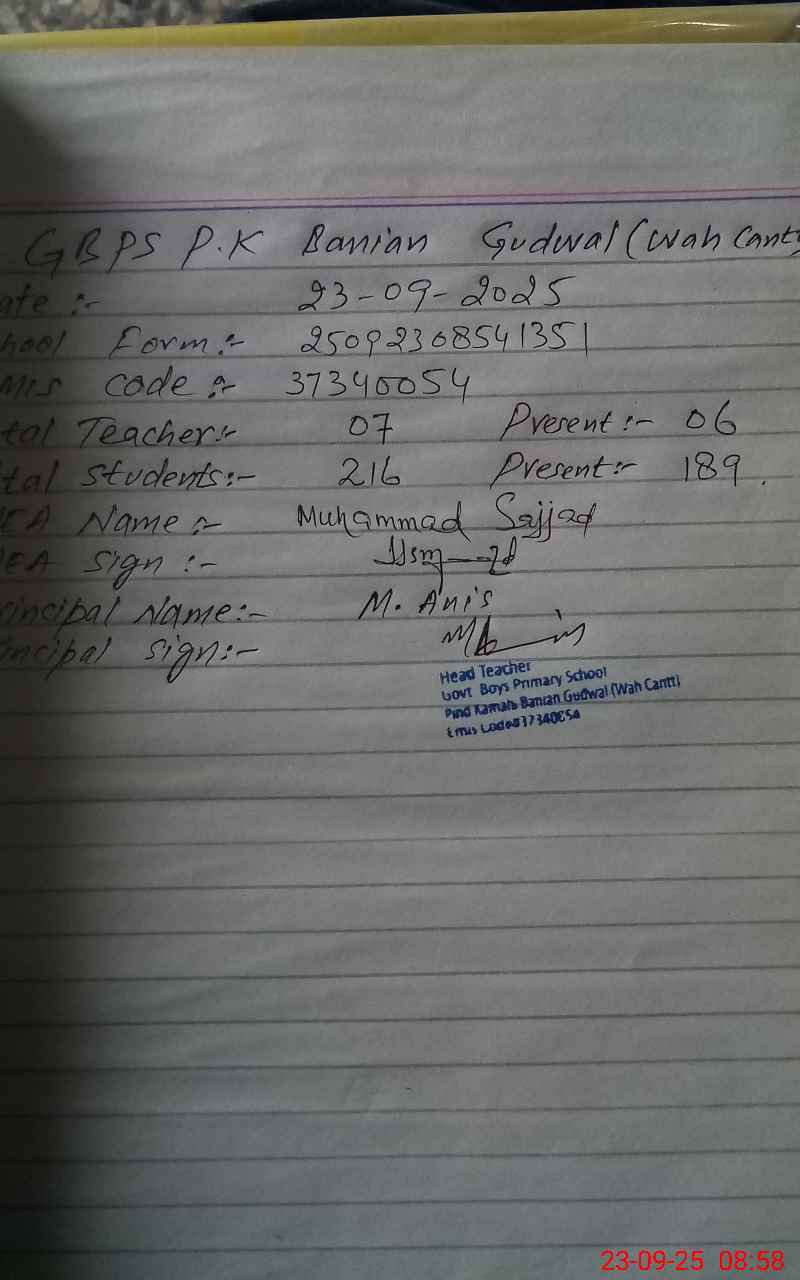 GBPS P.K Banian Gudwal (Wah Cantt)
ate :-
23-09-2025
hool Form:- 25092308541351
MIS Code :- 37340054
tal Teacher:- 07 Present :- 06
tal Students:- 216 Present:- 189.
EA Name :- Muhammad Sajjad
EA Sign :-
rincipal Name:- M. Anis
incipal Sign:-
Head Teacher
Govt Boys Primary School
Pind Kamala Banian Gudwal (Wah Cantt)
Emis Code#37340054
23-09-25 08:58